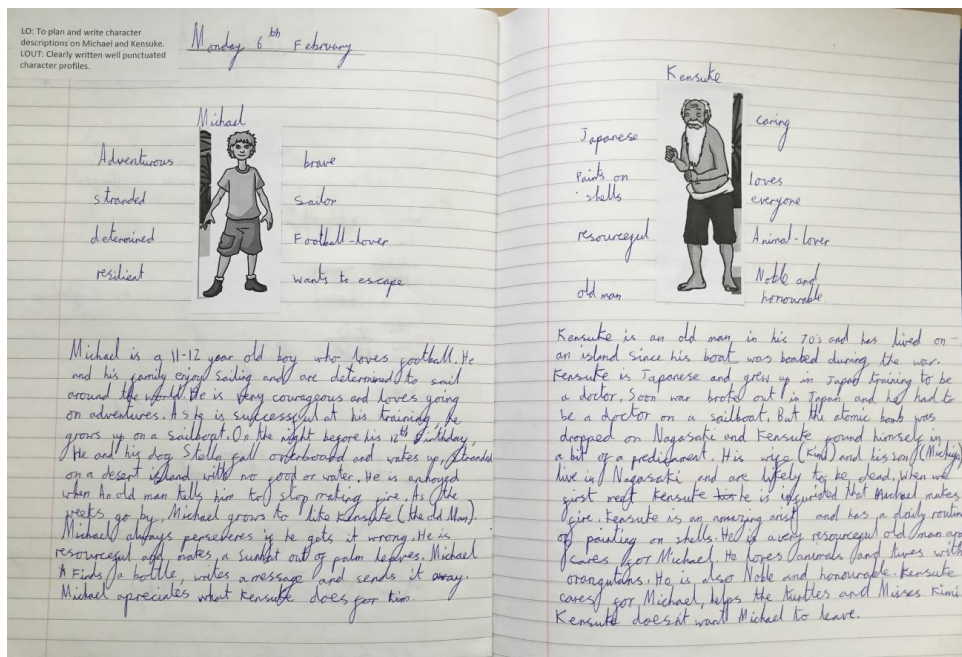 LO: To plan and write character
descriptions on Michael and Kensuke.
LOUT: Clearly written well punctuated
character profiles.
Monday 6th February
Michael
Adventurous
stranded
determined
resilient
brave
Sailor
Football-lover
wants to escape
Michael is a 11-12 year old boy who loves football. He
and his family enjoy sailing and are determined to sail
around the world. He is very courageous and loves going
on adventures. As he is successful at his training he
grows up on a sailboat. On the night before his 12th Birthday,
He and his dog Stella fall overboard and wakes up, stranded
on a desert island with no food or water. He is annoyed
when An old man tells him to stop making fire. As the
weeks go by, Michael grows to like Kensuke (the old Man).
Michael always perseveres if he gets it wrong. He is
resourceful and makes a sunhat out of palm leaves. Michael
Finds a bottle, writes a message and sends it away.
Michael apreciates what Kensuke does for him.
Kensuke
Japanese
Paints on
shells
resourceful
old man
caring
loves
everyone
Animal-lover
Noble and
honourable
Kensuke is an old man in his 70's and has lived on
an island since his boat was bombed during the war.
Kensuke is Japanese and grew up in Japan training to be
a doctor. Soon war broke out in Japan and he had to
be a doctor on a sailboat. But the atomic bomb was
dropped on Nagasaki and Kensuke found himself in
a bit of a predicment. His wife (Kimi) and his son (Michiya)
live in Nagasaki and are likely to be dead. When we
first meet Kensuke he is infuriated that Michael makes
fire. Kensuke is an amazing arist and has a daily routine
of painting on shells. He is a very resourceful old man and
cares for Michael. He loves animals and lives with
orangutans. He is also Noble and honourable. Kensuke
cares for Michael, helps the turtles and Misses Kimi.
Kensuke doesn't want Michael to leave.